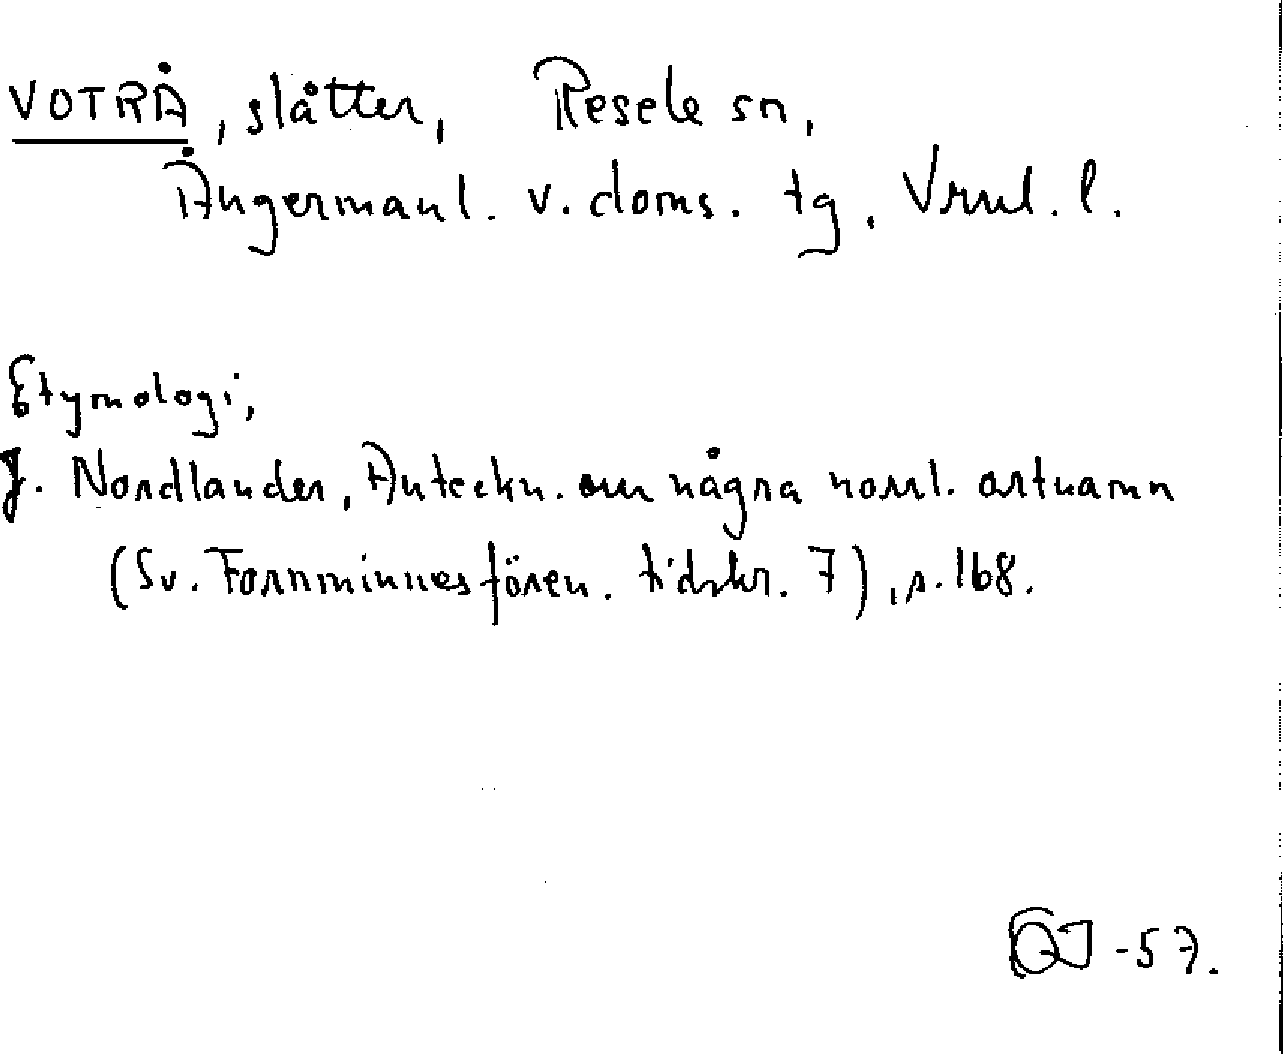 VOTRÅ, slåtter, Resele sn,
Ångermanl. v. doms. tg. Vrnl. l.
Etymologi,
J. Nordlander, Anteckn. om några norrl. ortnamn
(Sv. Fornminnesfören. tidskr. 7), s. 168.
-57.